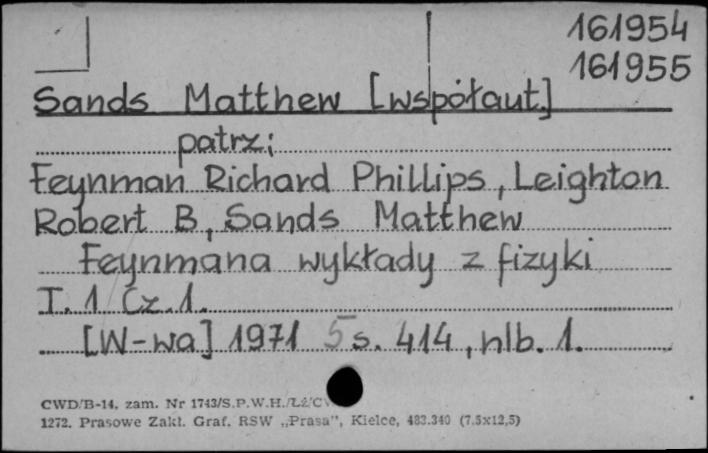 161954
161955
Sands Matthew [współaut.]
patrz:
Feynman Richard Phillips, Leighton
Robert B, Sands Matthew
Feynmana wykłady z fizyki
T. 1 Cz. 1.
[W-wa] 1971 5 s. 414, nlb. 1.
CWD/B-14, zam. Nr 1743/S.P.W.H./
1272. Prasowe Zakł. Graf. RSW „Prasa”, Kielce, 483.340 (7.5x12,5)